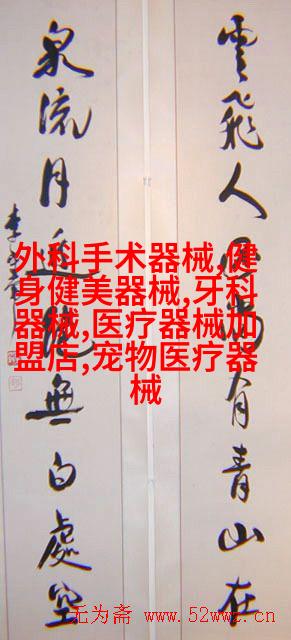 雲飛人有青山在
泉流月無白處空
李
外科手术器械,健
身健美器械,牙科
器械,医疗器械加
盟店,宠物医疗器
械
无为斋 www.52wwz.cn